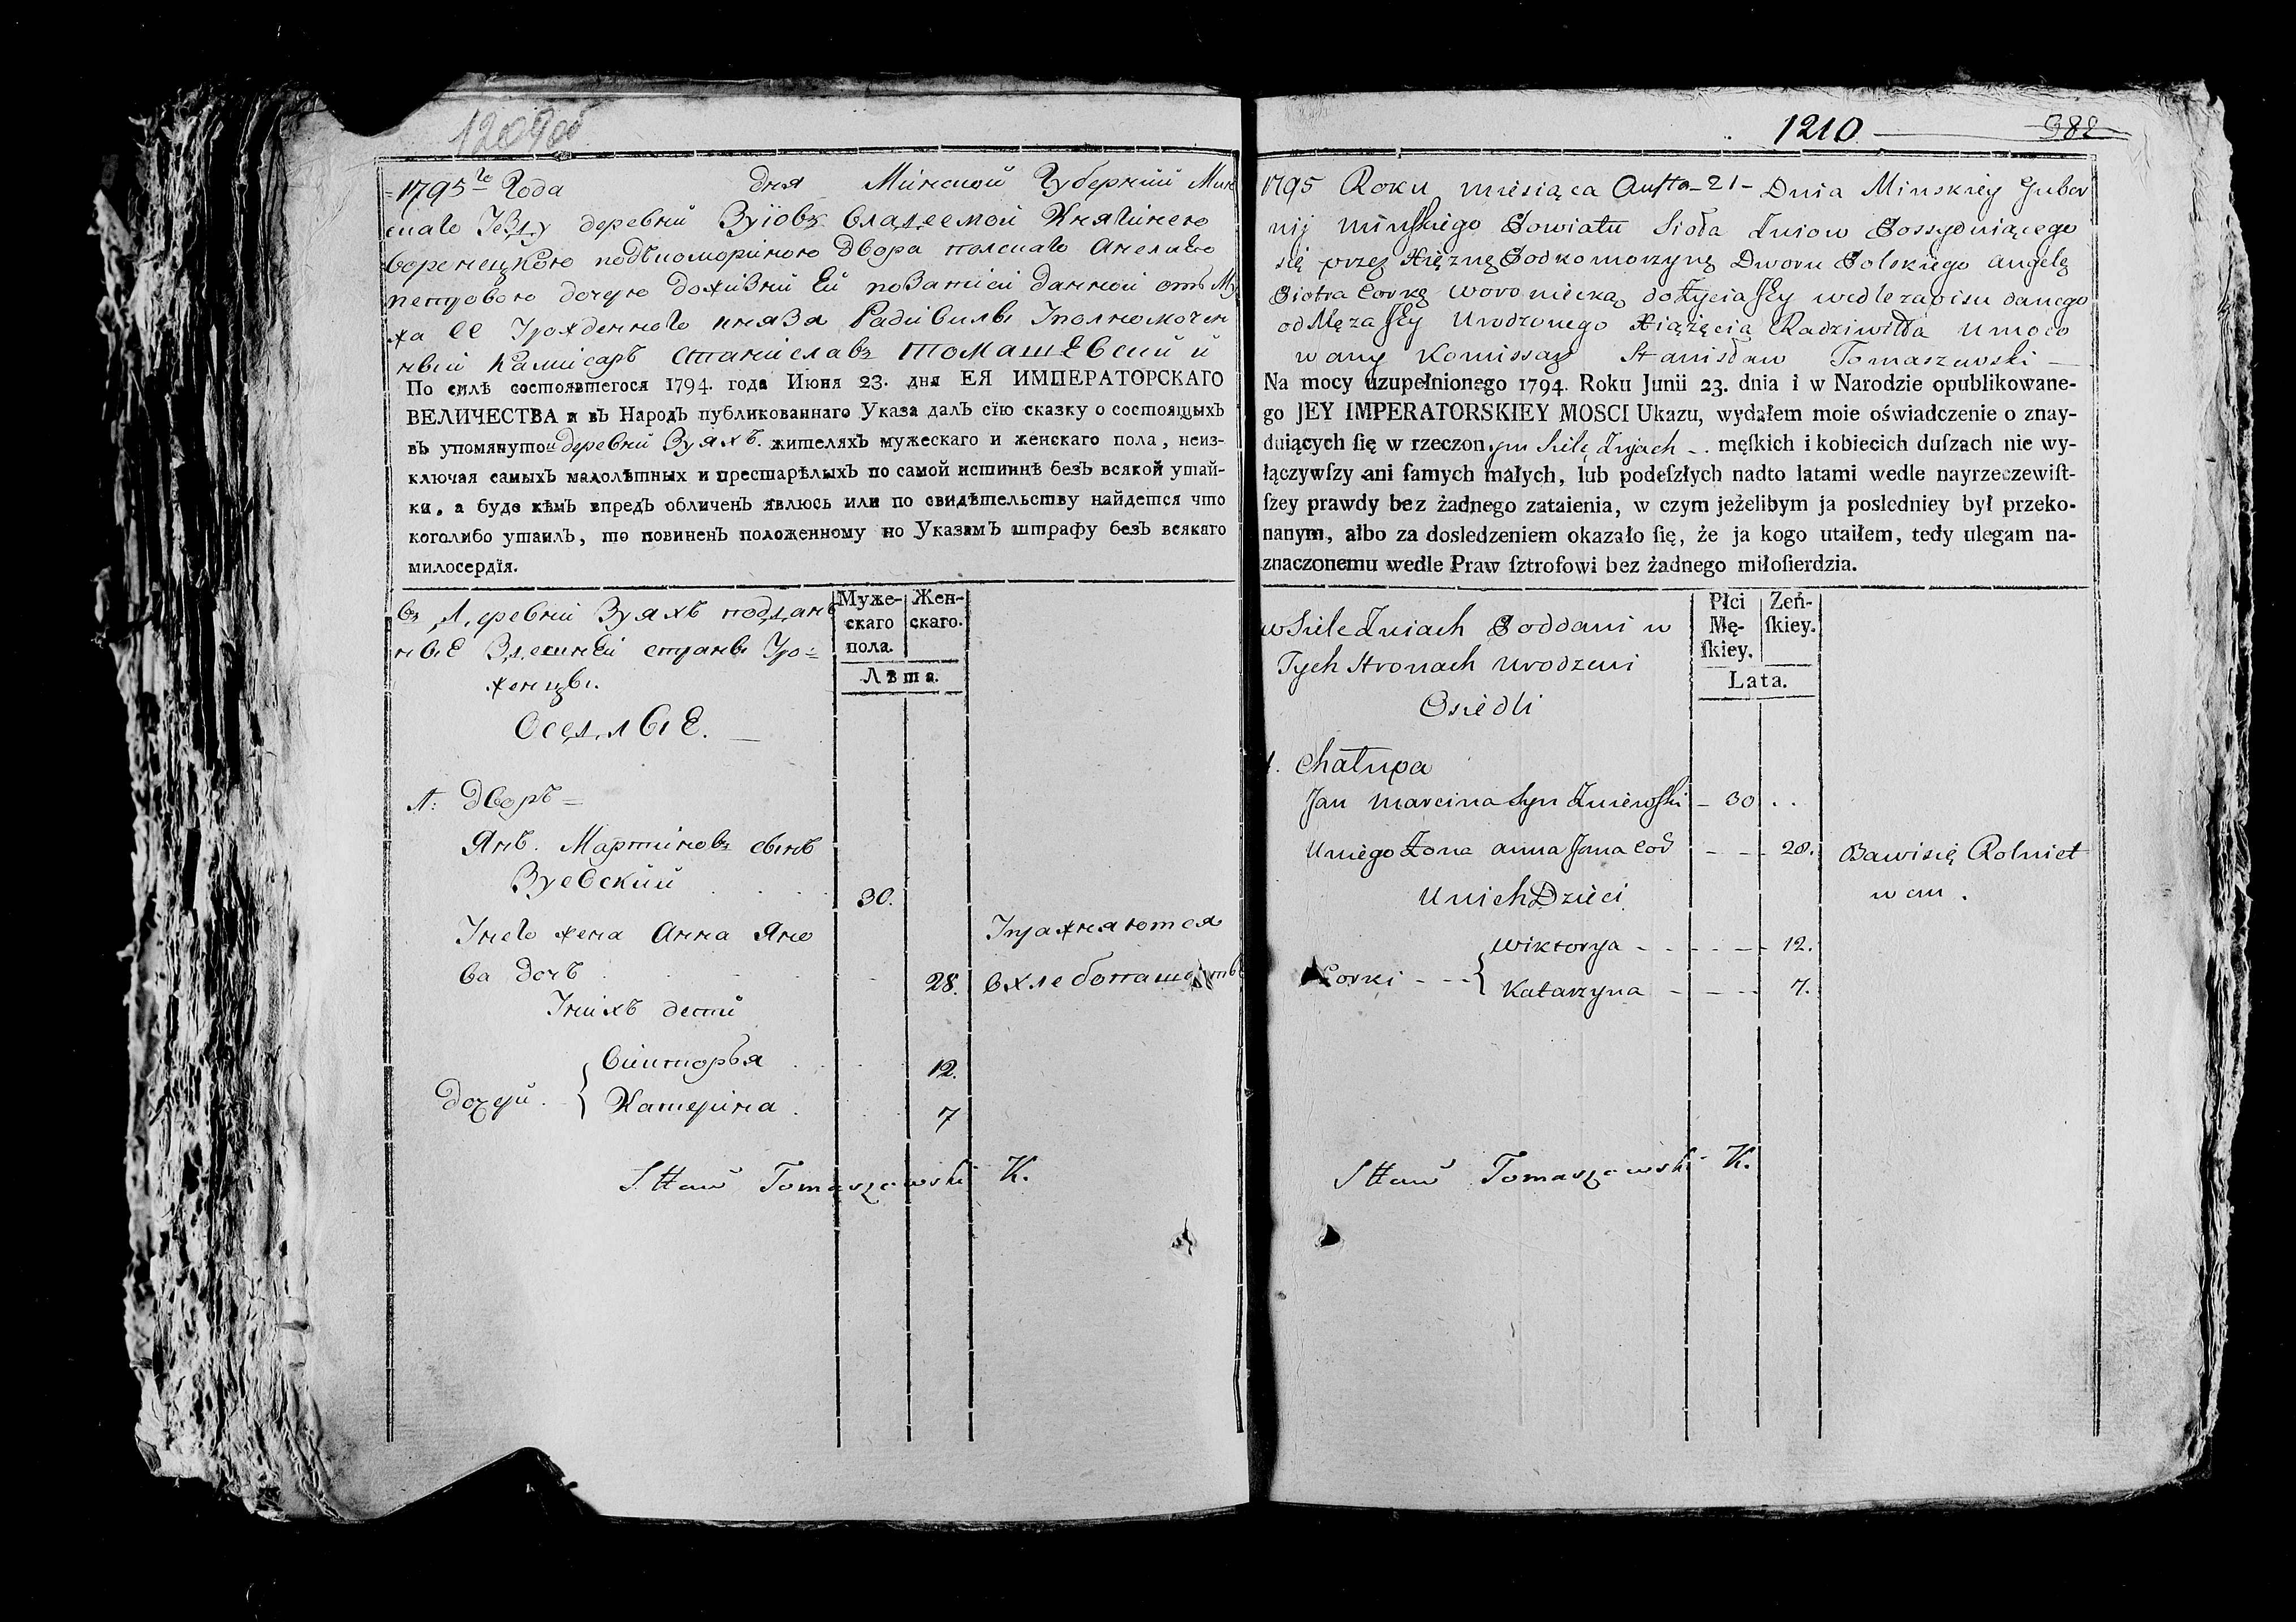 1209об
1795го Года дня Минской Губернии Мин
скаго Уезду деревни Зуiовъ владеемой Княгинею
Воронецкою подъкомориною Двора полскаго Анелиею
петровою дочерю доживни Ей по записи данной отъ Му
жа ее Урожденнаго князя Радивилы Уполномочен
ный Камисаръ Станиславъ Томашевский
По силѣ состоявшегося 1794. года Июня 23. дня ЕЯ ИМПЕРАТОРСКАГО
ВЕЛИЧЕСТВА и въ Народъ публикованнаго Указа далъ сїю сказку о состоящыхъ
въ упомянутой деревни Зуяхъ. жителяхъ мужескаго и женскаго пола, неиз-
ключая самыхъ малолѣтныхъ и престарѣлыхъ по самой истиннѣ безъ всякой утай-
ки, а буде кѣмъ впредъ обличенъ явлюсь или по свидѣтельству найдется что
коголибо утаилъ, то повиненъ положенному по Указамъ штрафу безъ всякаго
милосердїя.
Въ Деревни Зуяхъ поддан
ные Здешней страны Уро=
женцы.
Оседлые.
Муже-
скаго
пола.
Жен-
скаго.
Лѣта.
1: Дворъ =
Янъ. Мартиновъ сынъ
Зуевский 30.
Унего жена Анна Яно
ва дочь 28.
Упражняются
въ хлебопашествѣ
Унихъ дети
Викторья 12.
Дочери. { Катерина. 7
Sttaw Tomaszewski K.
1210 982
1795 Roku miesiąca Austa - 21 - Dnia Minskiey Guber
nij minskiego Powiatu Sioła Zuiow Possyduiącego
się przez Xięznę Podkomorzynę Dworu Polskiego Angelę
Piotra Corkę Woroniecką do Życia Jey wedle zapisu danego
od Męza Jey Urodzonego Xiążęcia Radziwiłła Umoco
wany Komissarz Stanisław Tomaszewski
Na mocy uzupełnionego 1794. Roku Junii 23. dnia i w Narodzie opublikowane-
go JEY IMPERATORSKIEY MOSCI Ukazu, wydałem moie oświadczenie o znay-
duiących ſię w rzeczonym Siele Zujach męſkich i kobiecich duſzach nie wy-
łączywſzy ani ſamych małych, lub podeſzłych nadto latami wedle nayrzeczewiſt-
ſzey prawdy bez żadnego zataienia, w czym jeżelibym ja posledniey był przeko-
nanym, albo za dosledzeniem okazało ſię, że ja kogo utaiłem, tedy ulegam na-
znaczonemu wedle Praw ſztrofowi bez żadnego miłoſierdzia.
w Siele Zuiach Poddani w
Tych Stronach Urodzeni
Osiedli
Płci
Mę-
ſkiey.
Zeń-
ſkiey.
Lata.
1. Chałupa
Jan Marcina Syn Zuiewski - 30 . .
U niego Zona Anna Jana Cor - - - 28. Bawi się Rolnict
wem.
U nich Dzieci
Wiktorya - - - - - 12.
Corki - - - { Katarzyna - - - - 7.
Sttaw Tomaszewski K.